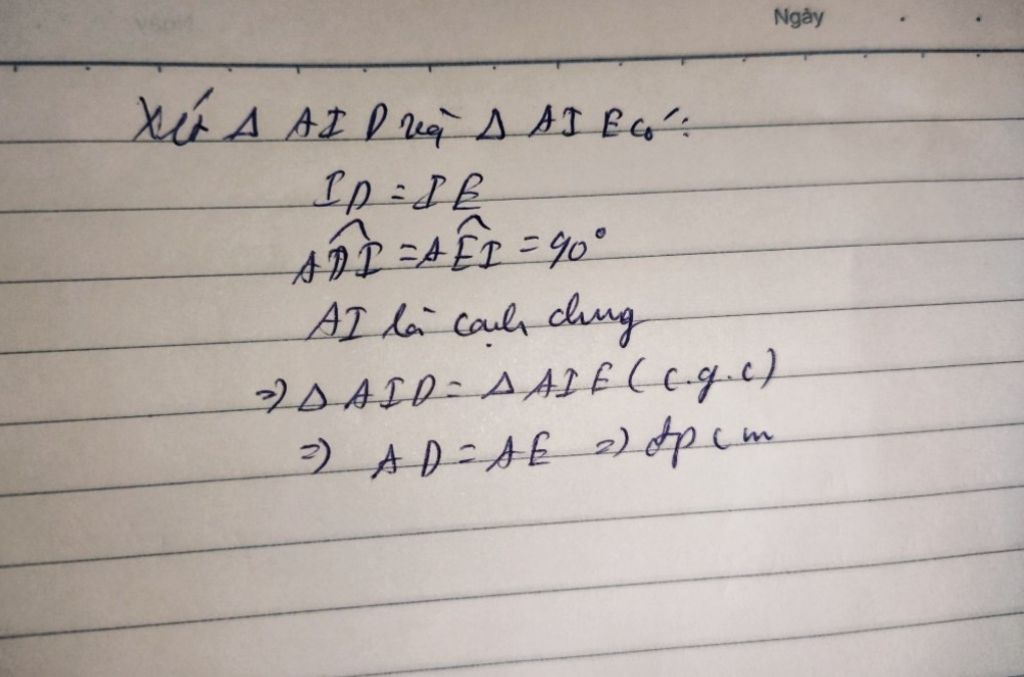 Ngày
Xét Δ AID và Δ AIE có:
ID = IE
ADI^ = AEI^ = 90°
AI là cạnh chung
=> Δ AID = Δ AIE (c.g.c)
=> AD = AE => đpcm